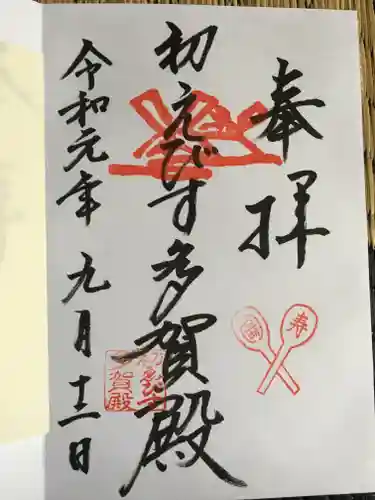 奉拝
初えびす多賀殿
令和元年 九月十二日
寿
初えびす
多賀殿